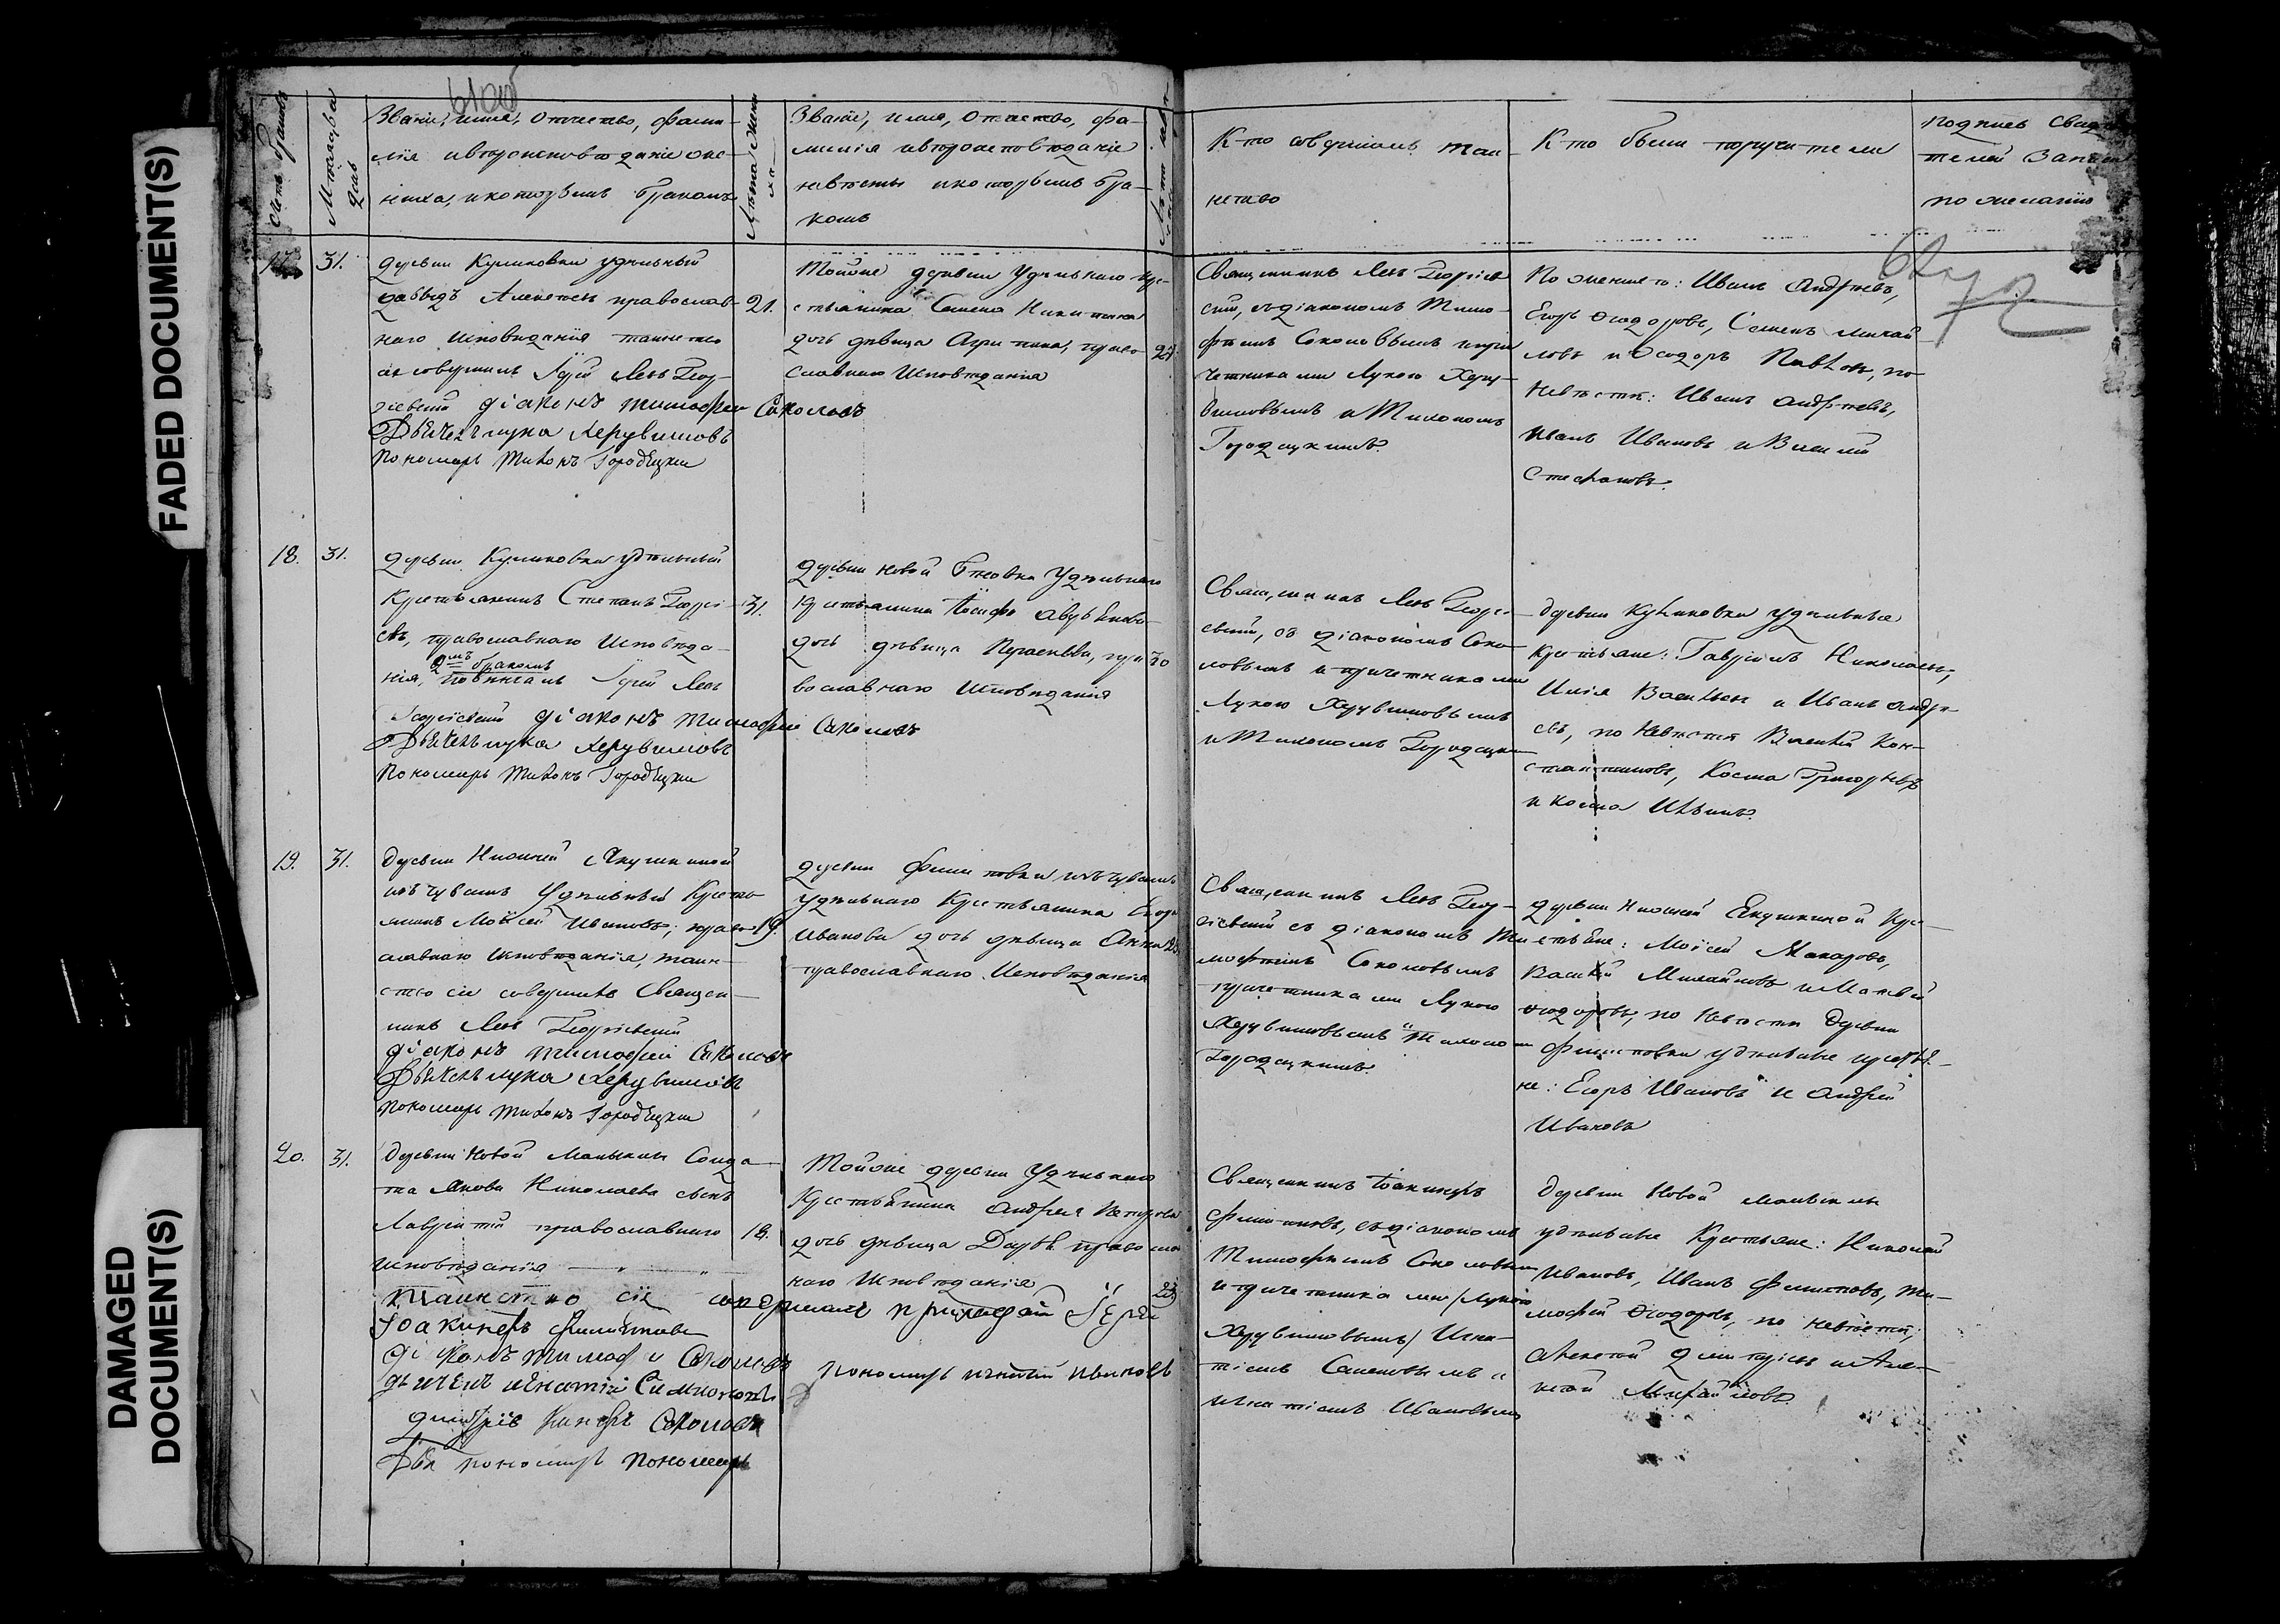 FADED DOCUMENT(S)
DAMAGED
DOCUMENT(S)
61об
Счетъ браковъ
Мѣсяцъ и
день
Званіе, имя, отчество, фами-
лія и вѣроисповѣданіе же-
ниха, и которымъ бракомъ
Лѣта жени-
ха
Званіе, имя, отчество, фа-
милія и вѣроисповѣданіе
невѣсты и которымъ бра-
комъ
Кто совершалъ таи-
нство
Кто были поручители
подпись свидѣ
телей
по желанію
17.
31.
деревни Куликовки удѣльный
Давыдъ Алексѣевъ православ-
наго исповѣданія таинство
сіе совершилъ Іерей Левъ Геор-
гіевскій діаконъ Тимофей Соколовъ
Дьячекъ Лука Херувимовъ
Пономарь Тихонъ Городецкій
21.
Тойже деревни удѣльнаго кре-
стьянина Семена Никитина
дочь дѣвица Агрипина, право
славнаго исповѣданія
Священникъ Левъ Георгіев
скій, съ діакономъ Тимо-
феемъ Соколовымъ и при
четниками Лукою Херу-
вимовымъ и Тихономъ
Городецкимъ.
По женихѣ: Иванъ Андреевъ,
Егоръ Ѳедоровъ, Семенъ Михай
ловъ и Ѳедоръ Павловъ, по
невѣстѣ: Иванъ Андреевъ,
Иванъ Ивановъ и Василій
Стефановъ.
18.
31.
деревни Куликовки удѣльный
Крестьянинъ Степанъ Георгі-
евъ, православнаго исповѣда-
2мъ бракомъ
нія, повѣнчалъ Іерей Левъ
Георгіевскій діаконъ Тимофей Соколовъ
Дьячекъ Лука Херувимовъ
Пономарь Тихонъ Городецкій
31.
деревни Новой удѣльнаго
Крестьянина Іосифа
дочь дѣвица пра
вославнаго исповѣданія
30
Священникъ Левъ Георгі-
евскій, съ діакономъ Соко-
ловымъ и причетниками
Лукою Херувимовымъ
и Тихономъ Городецким
деревни Куликовки удѣльные
крестьяне: Гавріилъ Николаевъ,
Илія Васильевъ и Иванъ Андре-
евъ, по невѣстѣ Василій Кон-
стантиновъ, Косма Григорьевъ
и Косма Ильинъ.
19.
31.
Деревни Нижней Якушкиной
изъ чувашъ Удѣльный Кресть
янинъ Моѵсей Ивановъ, право
славнаго исповѣданія, таин-
ство сіе совершилъ Священ-
никъ Левъ Георгіевскій
діаконъ Тимофей Соколовъ
Дьячекъ Лука Херувимовъ
Пономарь Тихонъ Городецкій
19.
деревни Филиповки изъ чувашъ
удѣльнаго Крестьянина Егора
Иванова дочь дѣвица Анна
православнаго исповѣданія
Священникъ Левъ Геор-
гіевскій съ діакономъ Ти
мофеемъ Соколовымъ
причетниками Лукою
Херувимовымъ и Тихоном
Городецкимъ.
деревни Нижней Якушкиной Кре-
стьяне: Моисей Макаровъ,
Василій Михайловъ и Матвей
Ѳедоровъ, по невѣстѣ деревни
Филиповки удѣльные крестья-
не: Егоръ Ивановъ и Андрей
Ивановъ
20.
31.
Деревни Новой Малыклы Солда-
та Якова Николаева сынъ
Лаврентій православнаго
исповѣданія
Таинство сіе совершилъ приходскій Іерей
Іоакинфъ Филиповъ
діаконъ Тимофей Соколовъ
дьячекъ Игнатій Симмоновъ
Пономарь Игнатій Ивановъ
18.
Тойже деревни Удѣльнаго
Крестьянина Андрея Петрова
дочь дѣвица Дарья православ
наго исповѣданія
23
Священникъ Іоакинфъ
Филиповъ, съ діакономъ
Тимофеемъ Соколовым
и причетниками (Лукою
Херувимовымъ) Игна-
тіемъ Семеновымъ и
Игнатіемъ Ивановым
Деревни Новой Малыклы
удѣльные Крестьяне: Николай
Ивановъ, Иванъ Филиповъ, Ти-
мофей Ѳедоровъ, по невѣстѣ,
Алексей Димитріевъ и Але-
ксей Михайловъ.